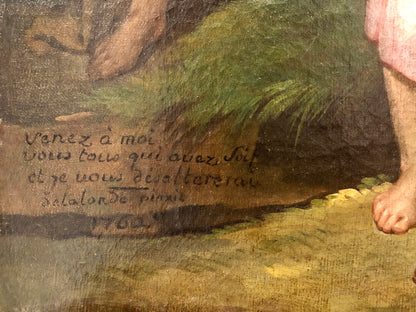 Venez à moi
vous tous qui avez Soif
et je vous desaltererai
Delalonde pinxit
1762